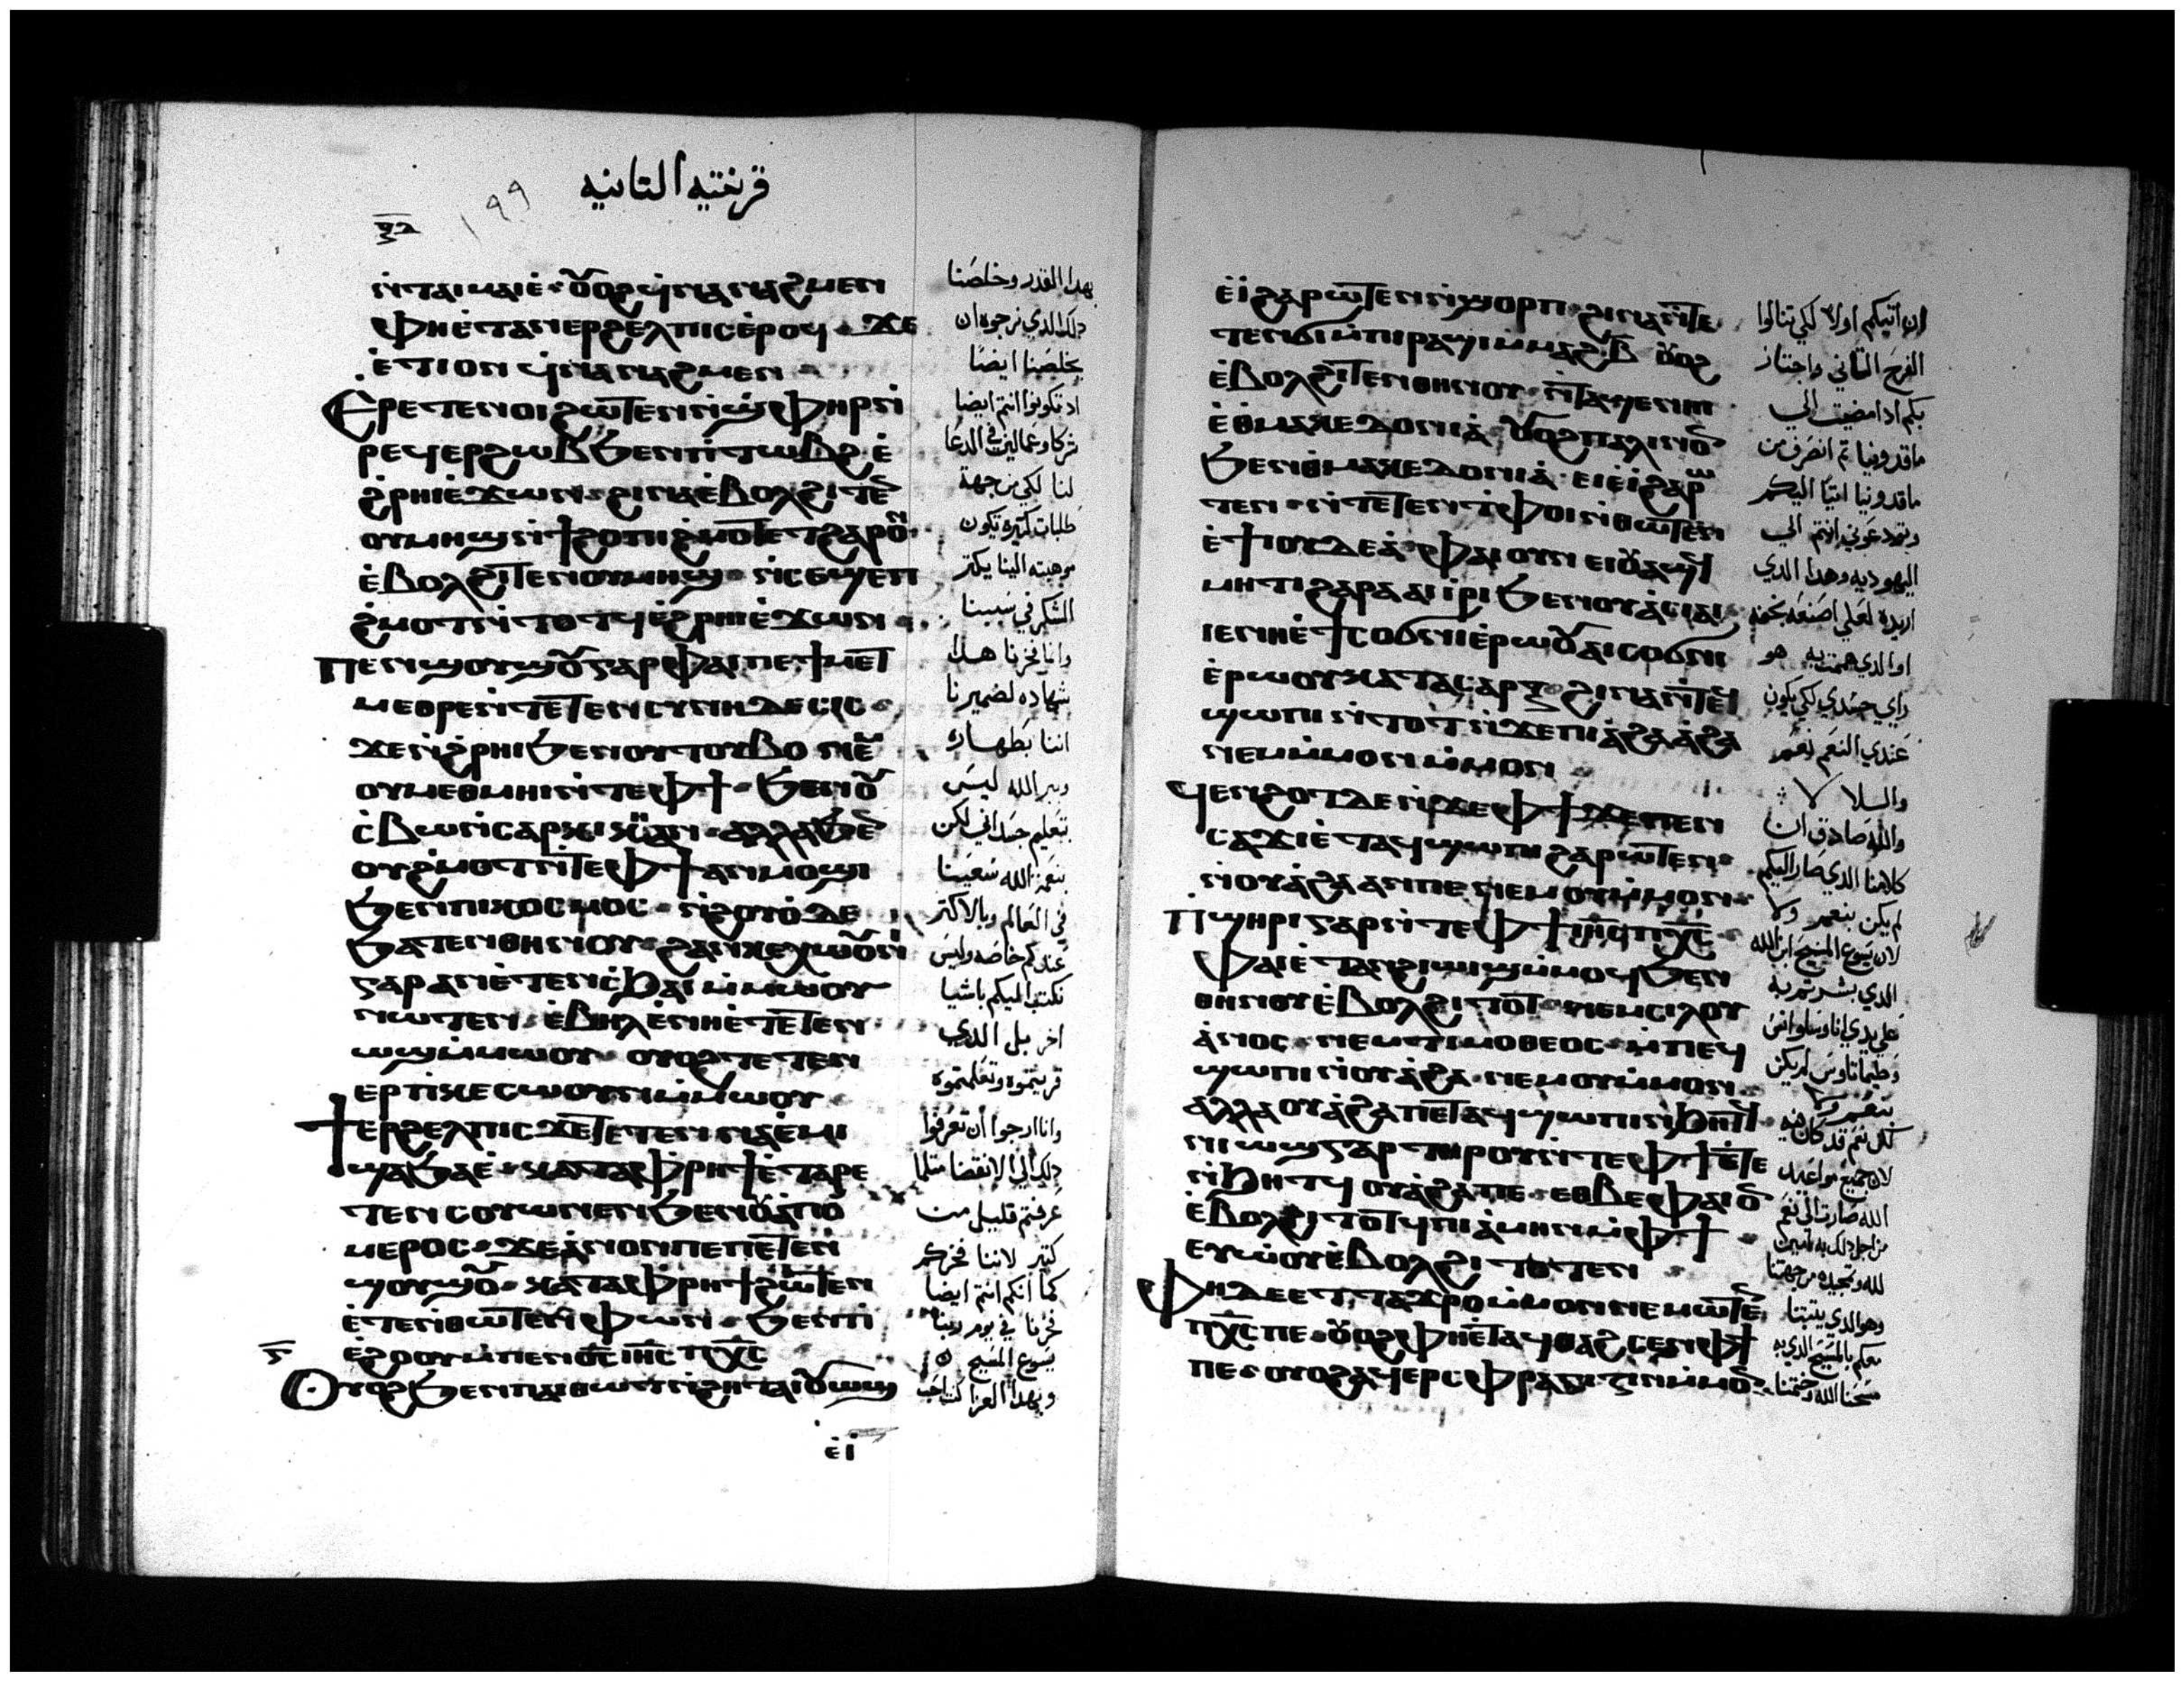 قرنتيه التانيه
١٩٩
ⲛ̀ⲧⲁⲓⲙⲁⲓⲉ̀ ⲟⲩⲟϩ ϥ̀ⲛⲁⲛⲁϩⲙⲉⲛ
ⲫⲏⲉ̀ⲧⲁⲛⲉⲣϩⲉⲗⲡⲓⲥ ⲉ̀ⲣⲟϥ ϫⲉ
ⲉ̀ⲧⲓ ⲟⲛ ϥ̀ⲛⲁⲛⲁϩⲙⲉⲛ
Ⲉⲣⲉⲧⲉⲛⲟⲓ ϩⲱⲧⲉⲛ ⲛ̀ϣ̀ⲫⲏⲣ ⲛ̀
ⲣⲉϥⲉⲣϩⲱⲃ ϧⲉⲛ ⲡⲓⲧⲱⲃϩ ⲉ̀
ϩ̀ⲣⲏⲓ ⲉ̀ϫⲱⲛ ϩⲓⲛⲁ ⲉ̀ⲃⲟⲗϩⲓⲧⲉⲛ
ⲟⲩⲙⲏϣ ⲛ̀ϯϩⲟ ⲡⲓϩ̀ⲙⲟⲧ ⲉⲧϩⲁⲣⲟⲛ
ⲉ̀ⲃⲟⲗϩⲓⲧⲉⲛ ⲟⲩⲙⲏϣ ⲛ̀ⲥⲉϣⲉⲡ
ϩ̀ⲙⲟⲧ ⲛ̀ⲧⲟⲧϥ ⲉ̀ϩⲣⲏⲓ ⲉ̀ϫⲱⲛ
Ⲡⲉⲛϣⲟⲩϣⲟⲩ ⲅⲁⲣ ⲫⲁⲓ ⲡⲉ ϯⲙⲉⲧ
ⲙⲉⲑⲣⲉ ⲛ̀ⲧⲉ ⲧⲉⲛⲥⲩⲛⲏⲇⲉⲥⲓⲥ
ϫⲉ ⲛ̀ϩ̀ⲣⲏⲓ ϧⲉⲛ ⲟⲩⲧⲟⲩⲃⲟ ⲛⲉⲙ
ⲟⲩⲙⲉⲑⲙⲏⲓ ⲛ̀ⲧⲉ ⲫϯ ϧⲉⲛ ⲟⲩ
ⲥ̀ⲃⲱ ⲛ̀ⲥⲁⲣⲕⲓⲕⲏ ⲁⲛ ⲁⲗⲗⲁ ϧⲉⲛ
ⲟⲩϩ̀ⲙⲟⲧ ⲛ̀ⲧⲉ ⲫϯ ⲁⲛⲙⲟϣⲓ
ϧⲉⲛ ⲡⲓⲕⲟⲥⲙⲟⲥ ⲛ̀ϩⲟⲩⲟ̀ ⲇⲉ
ϧⲁⲧⲉⲛ ⲑⲏⲛⲟⲩ ϩⲁⲛⲕⲉⲭⲱⲟⲩⲛⲓ
ⲅⲁⲣ ⲁⲛ ⲉ̀ⲧⲉⲛⲥ̀ϧⲁⲓ ⲙ̀ⲙⲱⲟⲩ
ⲛⲱⲧⲉⲛ ⲉ̀ⲃⲏⲗ ⲉ̀ⲛⲏⲉ̀ⲧⲉⲧⲉⲛ
ⲱϣ ⲙ̀ⲙⲱⲟⲩ ⲟⲩⲟϩ ⲧⲉⲧⲉⲛ
ⲉⲣⲡⲓⲕⲉⲥⲱⲟⲩⲛ ⲙ̀ⲙⲱⲟⲩ
Ϯⲉⲣϩⲉⲗⲡⲓⲥ ϫⲉ ⲧⲉⲧⲉⲛⲛⲁⲉ̀ⲙⲓ
ϣⲁ ϧⲁⲉ̀ ⲕⲁⲧⲁ ⲫ̀ⲣⲏϯ ⲉ̀ⲧⲁⲣⲉ
ⲧⲉⲛⲥⲟⲩⲱⲛⲉⲛ ϧⲉⲛ ⲟⲩⲁ̀ⲡⲟ
ⲙⲉⲣⲟⲥ ϫⲉ ⲁ̀ⲛⲟⲛ ⲡⲉ ⲡⲉⲧⲉⲛ
ϣⲟⲩϣⲟⲩ ⲕⲁⲧⲁ ⲫ̀ⲣⲏϯ ϩⲱⲧⲉⲛ
ⲉ̀ⲧⲉ ⲛ̀ⲑⲱⲧⲉⲛ ⲫⲱⲛ ϧⲉⲛ ⲡⲓ
ⲉ̀ϩⲟⲟⲩ ⲙ̀ⲡⲉⲛⲟ̅ⲥ̅ ⲓⲏ̅ⲥ̅ ⲡⲭ̅ⲥ̅
Ⲟⲩⲟϩ ϧⲉⲛ ⲡⲁⲓⲑⲱⲧ ⲛ̀ϩⲏⲧ ⲁⲓⲟⲩⲱϣ
ⲉ̀ⲓ̀
بهدا القدر وخلصنا
دلك الدي نرجوه ان
يخلصنا ايضا
اد تكونوا انتم ايضا
شركا وعمالين في الدعا
لنا لكي من جهة
طلبات كثيره تكون
موهبته الينا يكتر
الشكر في سببنا
وانا فخرنا هدا
شهاده لضميرنا
اننا بطهاره
وبر الله ليس
بتعليم جسداني لكن
بنعمة الله سعينا
في العالم وبالاكتر
عندكم خاصه وليس
نكتب اليكم باشيا
اخر بل الدي
قريتموه وتعلمتموه
وانا ارجوا ان تعرفوا
دلك الي الانقضا متلما
عرفتم قليل من
كتير لاننا فخركم
كما انكم انتم ايضا
فخرنا في يوم ربنا
يسوع المسيح
وبهدا العزا كنت احب
ⲉ̀ⲓ̀ ϩⲁⲣⲱⲧⲉⲛ ⲛ̀ϣⲟⲣⲡ ϩⲓⲛⲁ ⲛ̀ⲧⲉ
ⲧⲉⲛϭⲓ ⲙ̀ⲡⲓⲣⲁϣⲓ ⲙ̀ⲙⲁϩ ⲃ̅ ⲟⲩⲟϩ
ⲉ̀ⲃⲟⲗϩⲓⲧⲉⲛ ⲑⲏⲛⲟⲩ ⲛ̀ⲧⲁϣⲉⲛⲏⲓ
ⲉ̀ⲑⲙⲁⲕⲉⲇⲟⲛⲓⲁ̀ ⲟⲩⲟϩ ⲡⲁⲗⲓⲛ ⲟⲛ
ϧⲉⲛ ⲑⲙⲁⲕⲉⲇⲟⲛⲓⲁ̀ ⲉⲓⲉ̀ⲓ̀ ϩⲁⲣⲱ
ⲧⲉⲛ ⲛ̀ⲧⲉⲧⲉⲛⲧ̀ⲫⲟⲓ ⲛ̀ⲑⲱⲧⲉⲛ
ⲉ̀ϯⲓⲟⲩⲇⲉⲁ̀ ⲫⲁⲓ ⲟⲩⲛ ⲉⲓⲟⲩⲁϣϥ
ⲙⲏⲧⲓ ϩⲁⲣⲁ ⲁⲓⲓ̀ⲣⲓ ϧⲉⲛ ⲟⲩⲁ̀ⲥⲓⲁⲓ
ⲓⲉ ⲛⲏⲉ̀ϯⲥⲟϭⲛⲓ ⲉ̀ⲣⲱⲟⲩ ⲁⲓⲥⲟϭⲛⲓ
ⲉ̀ⲣⲱⲟⲩ ⲕⲁⲧⲁ ⲥⲁⲣⲝ ϩⲓⲛⲁ ⲛ̀ⲧⲉϥ
ϣⲱⲡⲓ ⲛ̀ⲧⲟⲧ ⲛ̀ϫⲉ ⲡⲓⲁ̀ϩⲁ ⲁ̀ϩⲁ
ⲛⲉⲙ ⲙ̀ⲙⲟⲛ ⲙ̀ⲙⲟⲛ
Ϥⲉⲛϩⲟⲧ ⲇⲉ ⲛ̀ϫⲉ ⲫϯ ϫⲉ ⲡⲉⲛ
ⲥⲁϫⲓ ⲉ̀ⲧⲁϥϣⲱⲡⲓ ϩⲁⲣⲱⲧⲉⲛ
ⲛⲟⲩⲁ̀ϩⲁ ⲁⲛ ⲡⲉ ⲛⲉⲙ ⲟⲩⲙ̀ⲙⲟⲛ
Ⲡϣⲏⲣⲓ ⲅⲁⲣ ⲛ̀ⲧⲉ ⲫϯ ⲓⲏ̅ⲥ̅ ⲡⲭ̅ⲥ̅
ⲫⲁⲓ ⲉ̀ⲧⲁⲛϩⲓⲱⲓϣ ⲙ̀ⲙⲟϥ ϧⲉⲛ
ⲑⲏⲛⲟⲩ ⲉ̀ⲃⲟⲗϩⲓⲧⲟⲧ ⲛⲉⲙ ⲥⲓⲗⲟⲩ
ⲁ̀ⲛⲟⲥ ⲛⲉⲙ ⲧⲓⲙⲟⲑⲉⲟⲥ ⲙ̀ⲡⲉϥ
ϣⲱⲡⲓ ⲛ̀ⲟⲩⲁ̀ϩⲁ ⲛⲉⲙ ⲟⲩⲙ̀ⲙⲟⲛ
ⲁⲗⲗⲁ ⲟⲩⲁ̀ϩⲁ ⲡⲉⲧⲁϥϣⲱⲡⲓ ⲛ̀ϧⲏⲧϥ
ⲛⲓⲱϣ ⲅⲁⲣ ⲧⲏⲣⲟⲩ ⲛ̀ⲧⲉ ⲫϯ ⲉ̀ⲧⲉ
ⲛ̀ϧⲏⲧϥ ⲟⲩⲁ̀ϩⲁ ⲡⲉ ⲉⲑⲃⲉ ⲫⲁⲓ ⲟⲛ
ⲉ̀ⲃⲟⲗϩⲓⲧⲟⲧϥ ⲡⲓⲁ̀ⲙⲏⲛ ⲙ̀ⲫϯ
ⲉⲩⲱ̀ⲟⲩ ⲉ̀ⲃⲟⲗϩⲓⲧⲟⲧⲉⲛ
Ⲫⲏ ⲇⲉ ⲉⲧⲧⲁϫⲣⲟ ⲙ̀ⲙⲟⲛ ⲛⲉⲙⲱⲧⲉⲛ
ⲡⲭ̅ⲥ̅ ⲡⲉ ⲟⲩⲟϩ ⲫⲏⲉ̀ⲧⲁϥⲑⲁϩⲥⲉⲛ ⲫϯ
ⲡⲉ ⲟⲩⲟϩ ⲁϥⲉⲣⲥⲫⲣⲁⲅⲓⲍⲓⲛ ⲙ̀ⲙⲟⲛ
ان اتيكم اولا لكي تنالوا
الفرح التاني واجتاز
بكم ادا مضيت الي
ماقدونيا تم انصرف من
ماقدونيا اتيا اليكم
وتودعوني انتم الي
اليهوديه وهدا الدي
اريده لعلي اصنعه بخفه
او الدي هممت به هو
راي جسدي لكي يكون
عندي النعم نعم
والسلا لا
والله صادق ان
كلامنا الدي صار اليكم
لم يكن بنعم ولا
لان يسوع المسيح ابن الله
الدي بشرتم به
علي يدي انا وسلوانس
وطيماتاوس لم يكن
بنعم ولا
لكن نعم قد كان فيه
لان جميع مواعيد
الله صارت الي نعم
من اجل دلك به امين
لله وتمجيده من جهتنا
وهو الدي يثبتنا
معكم بالمسيح الدي به
مسحنا الله وختمنا